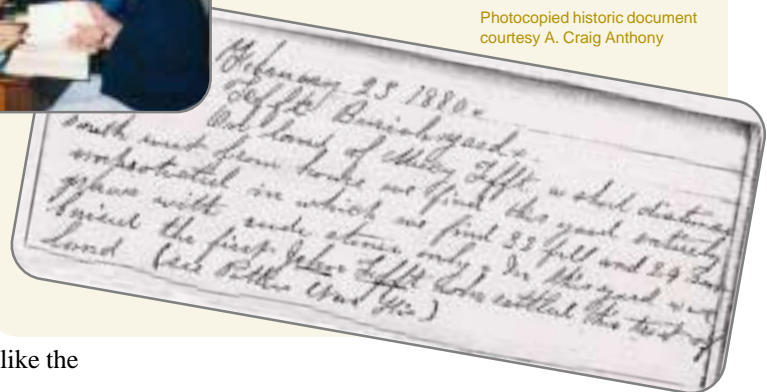 Photocopied historic document
courtesy A. Craig Anthony
February 23 1880.
Tefft Burialyards.
On land of Tefft a short distance
south west from house we find this yard entirely
unprotected in which we find 33 full and 29
graves with rude stones only. In this yard was
buried the first John Tefft who settled this tract of
land (see Potter
like the